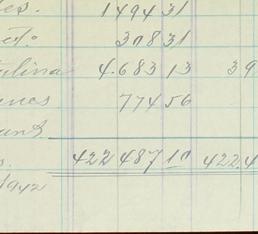 es. 1494 31
ed. 308 31
lina 4.683 13 39
nes 774 56
unt
s. 422 487 10 422.4